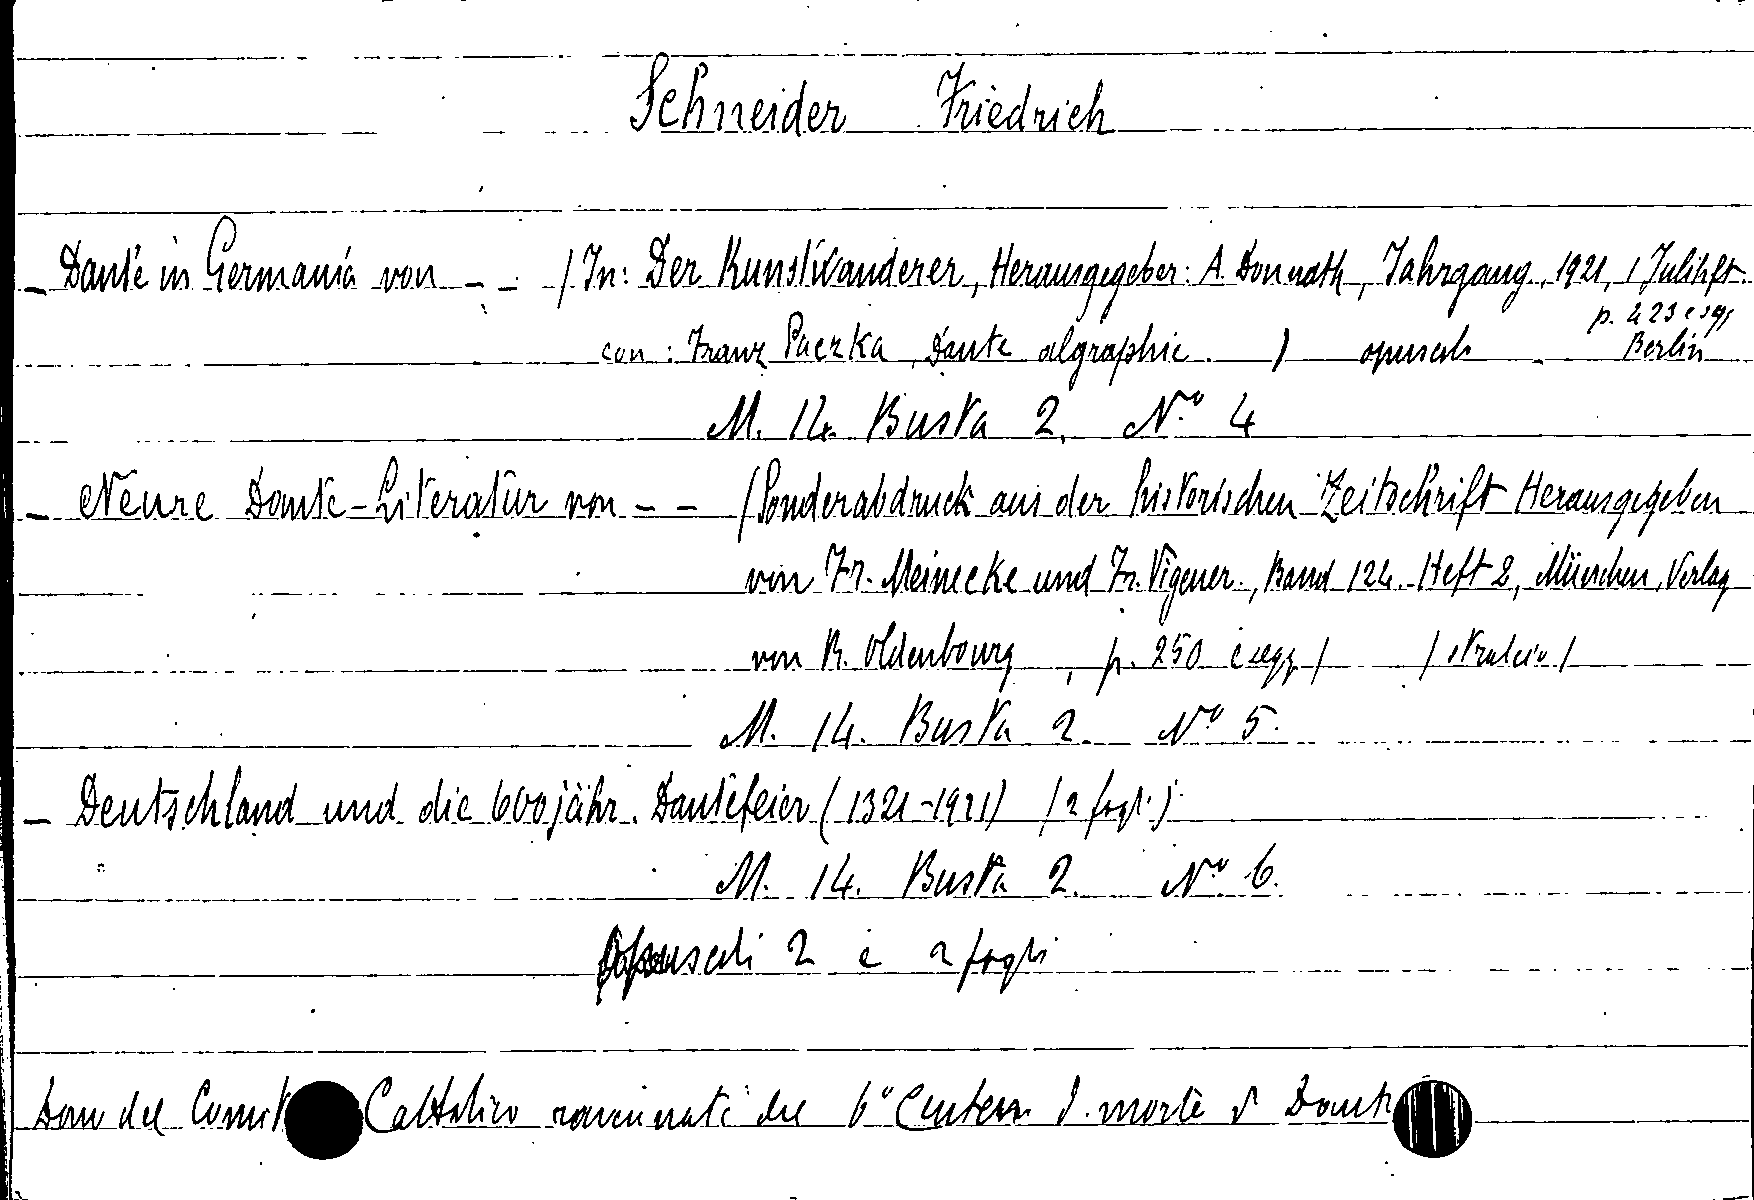 Schneider Friedrich
– Dante in Germania von – – / In: Der Kunstwanderer, Herausgegeber: A. Donnath, Jahrgang, 1921, 1 Juliheft.
p. 423 e sgg
con: Franz Paczka, Dante algraphie. ) opuscolo Berlin
M. 14. Busta 2. N.º 4
– Neure Dante-Literatur von – – / Sonderabdruck aus der historischen Zeitschrift Herausgegeben
von Fr. Meinecke und Fr. Vigener., Band 124. Heft 2, München, Verlag
von R. Oldenbourg , p. 250 e segg / / stralcio /
M. 14. Busta 2. Nº 5.
– Deutschland und die 600jähr. Dantefeier (1321-1921) / 2 fogli )
M. 14. Busta 2. Nº 6.
Opuscoli 2 e 2 fogli
Dono del Comit Cattolico ravennate del 6º Centen d. morte d Dante